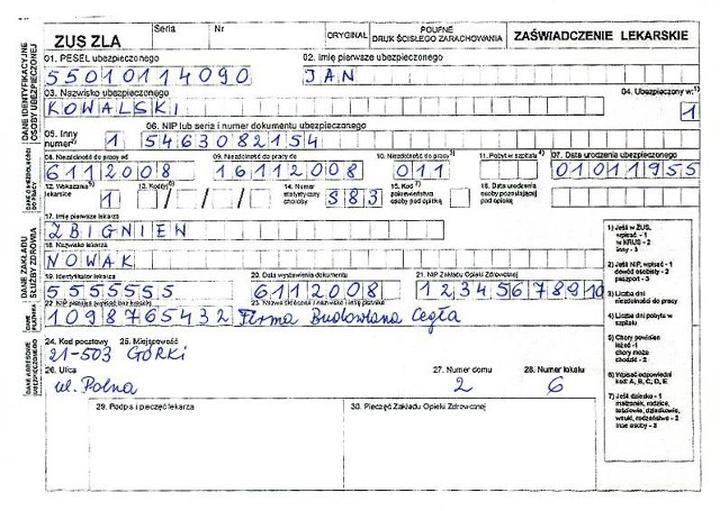 ZUS ZLA Seria Nr ORYGINAŁ POUFNE DRUK ŚCISŁEGO ZARACHOWANIA ZAŚWIADCZENIE LEKARSKIE
DANE IDENTYFIKACYJNE OSOBY UBEZPIECZONEJ
01. PESEL ubezpieczonego 02. Imię pierwsze ubezpieczonego
55010114090 JAN
03. Nazwisko ubezpieczonego 04. Ubezpieczony w:1)
KOWALSKI 1
05. Inny numer2) 06. NIP lub seria i numer dokumentu ubezpieczonego
1 5463082154
08. Niezdolność do pracy od 09. Niezdolność do pracy do 10. Niezdolność3) 11. Pobyt w szpitalu4) 07. Data urodzenia ubezpieczonego
6112008 16112008 011 01011955
12. Wskazania5) lekarskie 13. Kod(y)6) 14. Numer statystyczny choroby 15. Kod7) pokrewieństwa osoby pod opieką 16. Data urodzenia osoby pozostającej pod opieką
1 / / / S83
DANE ZAKŁADU SŁUŻBY ZDROWIA
17. Imię pierwsze lekarza
ZBIGNIEW
18. Nazwisko lekarza
NOWAK
19. Identyfikator lekarza 20. Data wystawienia dokumentu 21. NIP Zakładu Opieki Zdrowotnej
5555555 6112008 12345678910
22. NIP płatnika
1098765432 Firma Budowlana Cegła
24. Kod pocztowy 25. Miejscowość
21-503 GÓRKI
26. Ulica 27. Numer domu 28. Numer lokalu
ul. Polna 2 6
29. Podpis i pieczęć lekarza 30. Pieczęć Zakładu Opieki Zdrowotnej
1) Jeśli w ZUS,
wpisać - 1
w KRUS - 2
inny - 3
2) Jeśli NIP, wpisać - 1
dowód osobisty - 2
paszport - 3
3) Liczba dni
niezdolności do pracy
4) Liczba dni pobytu w
szpitalu
5) Chory powinien
leżeć - 1
chory może
chodzić - 2
6) Wpisać odpowiedni
kod: A, B, C, D, E
7) Jeśli dziecko - 1
małżonek, rodzice,
teściowie, dziadkowie,
wnuki, rodzeństwo - 2
inne osoby - 3